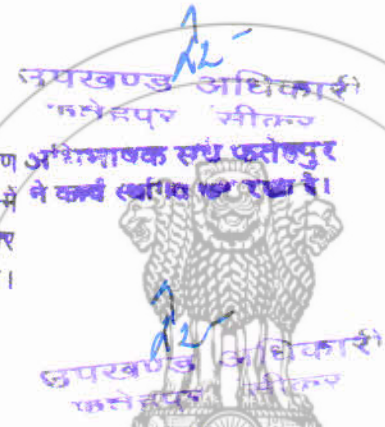 उपखण्ड अधिकारी
फतेहपुर सीकर
ण अभिभाषक संघ फतेहपुर
में ने कार्य स्थगित कर रखा है।
र
।
उपखण्ड अधिकारी
फतेहपुर सीकर